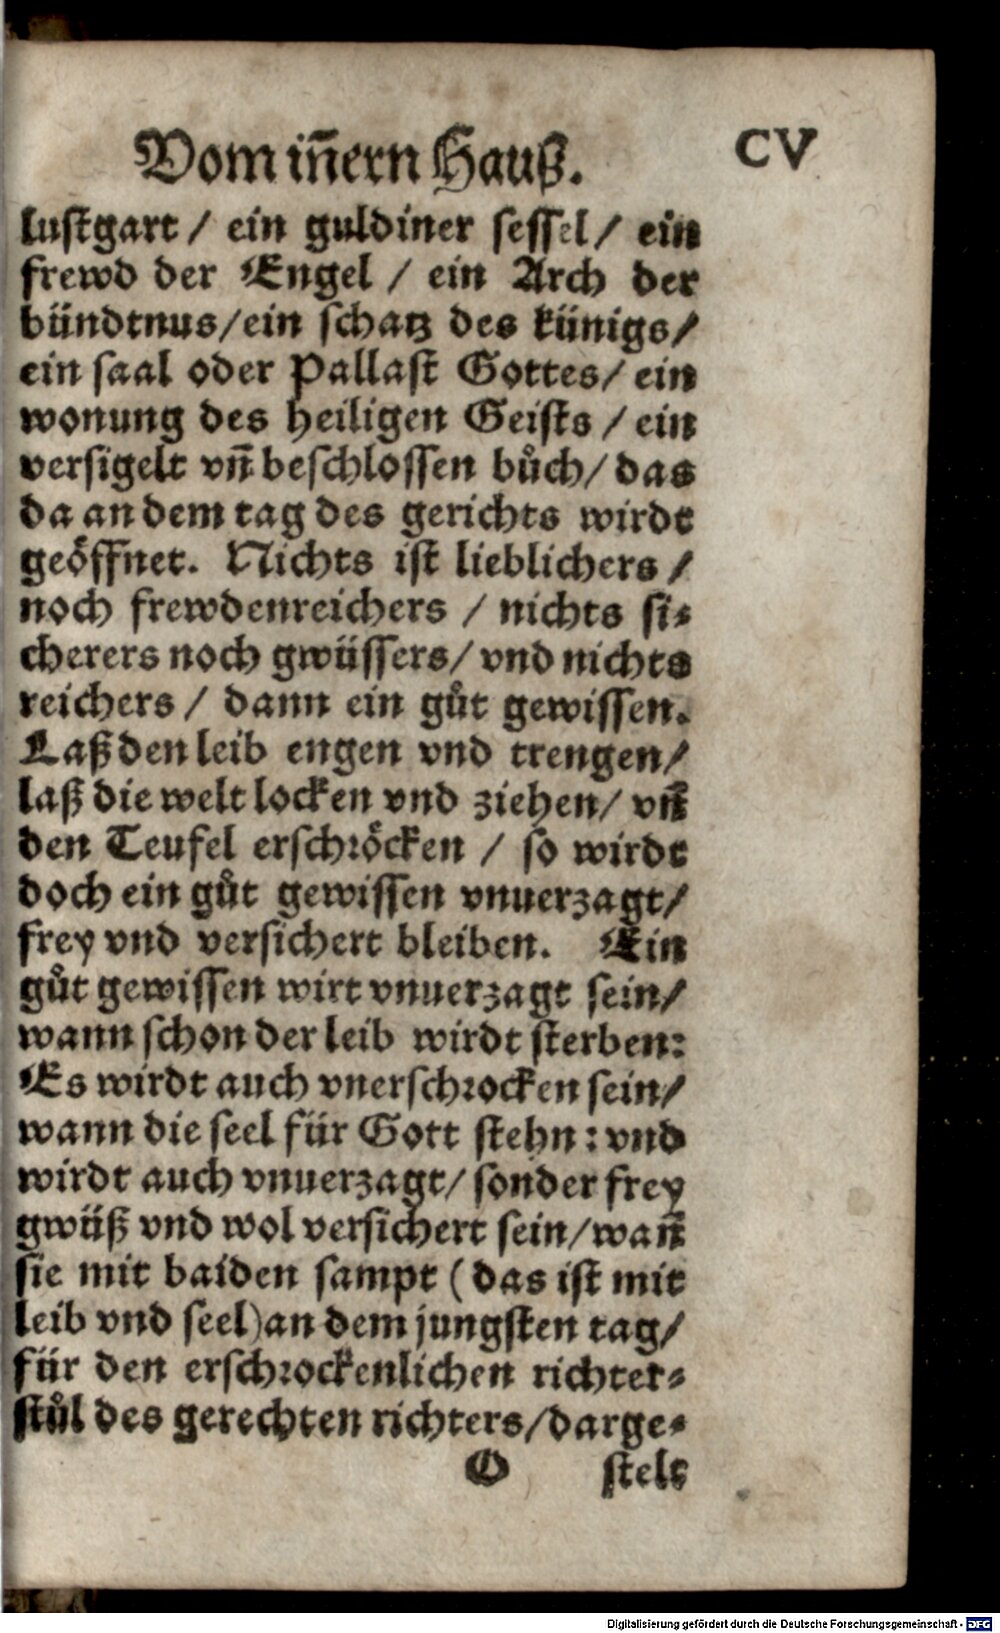 Vom iñern Hauß.
CV
lustgart / ein guldiner sessel / ein
frewd der Engel / ein Arch der
bündtnus / ein schatz des künigs /
ein saal oder Pallast Gottes / ein
wonung des heiligen Geists / ein
versigelt vñ beschlossen bůch / das
da an dem tag des gerichts wirdt
geöffnet. Nichts ist lieblichers /
noch frewdenreichers / nichts si-
cherers noch gwüssers / vnd nichts
reichers / dann ein gůt gewissen.
Laß den leib engen vnd trengen /
laß die welt locken vnd ziehen / vñ
den Teufel erschröcken / so wirdt
doch ein gůt gewissen vnuerzagt /
frey vnd versichert bleiben. Ein
gůt gewissen wirt vnuerzagt sein /
wann schon der leib wirdt sterben:
Es wirdt auch vnerschrocken sein /
wann die seel für Gott stehn : vnd
wirdt auch vnuerzagt / sonder frey
gwüß vnd wol versichert sein / wañ
sie mit baiden sampt (das ist mit
leib vnd seel) an dem jungsten tag /
für den erschrockenlichen richter-
stůl des gerechten richters / darge-
O stelt
Digitalisierung gefördert durch die Deutsche Forschungsgemeinschaft - DFG